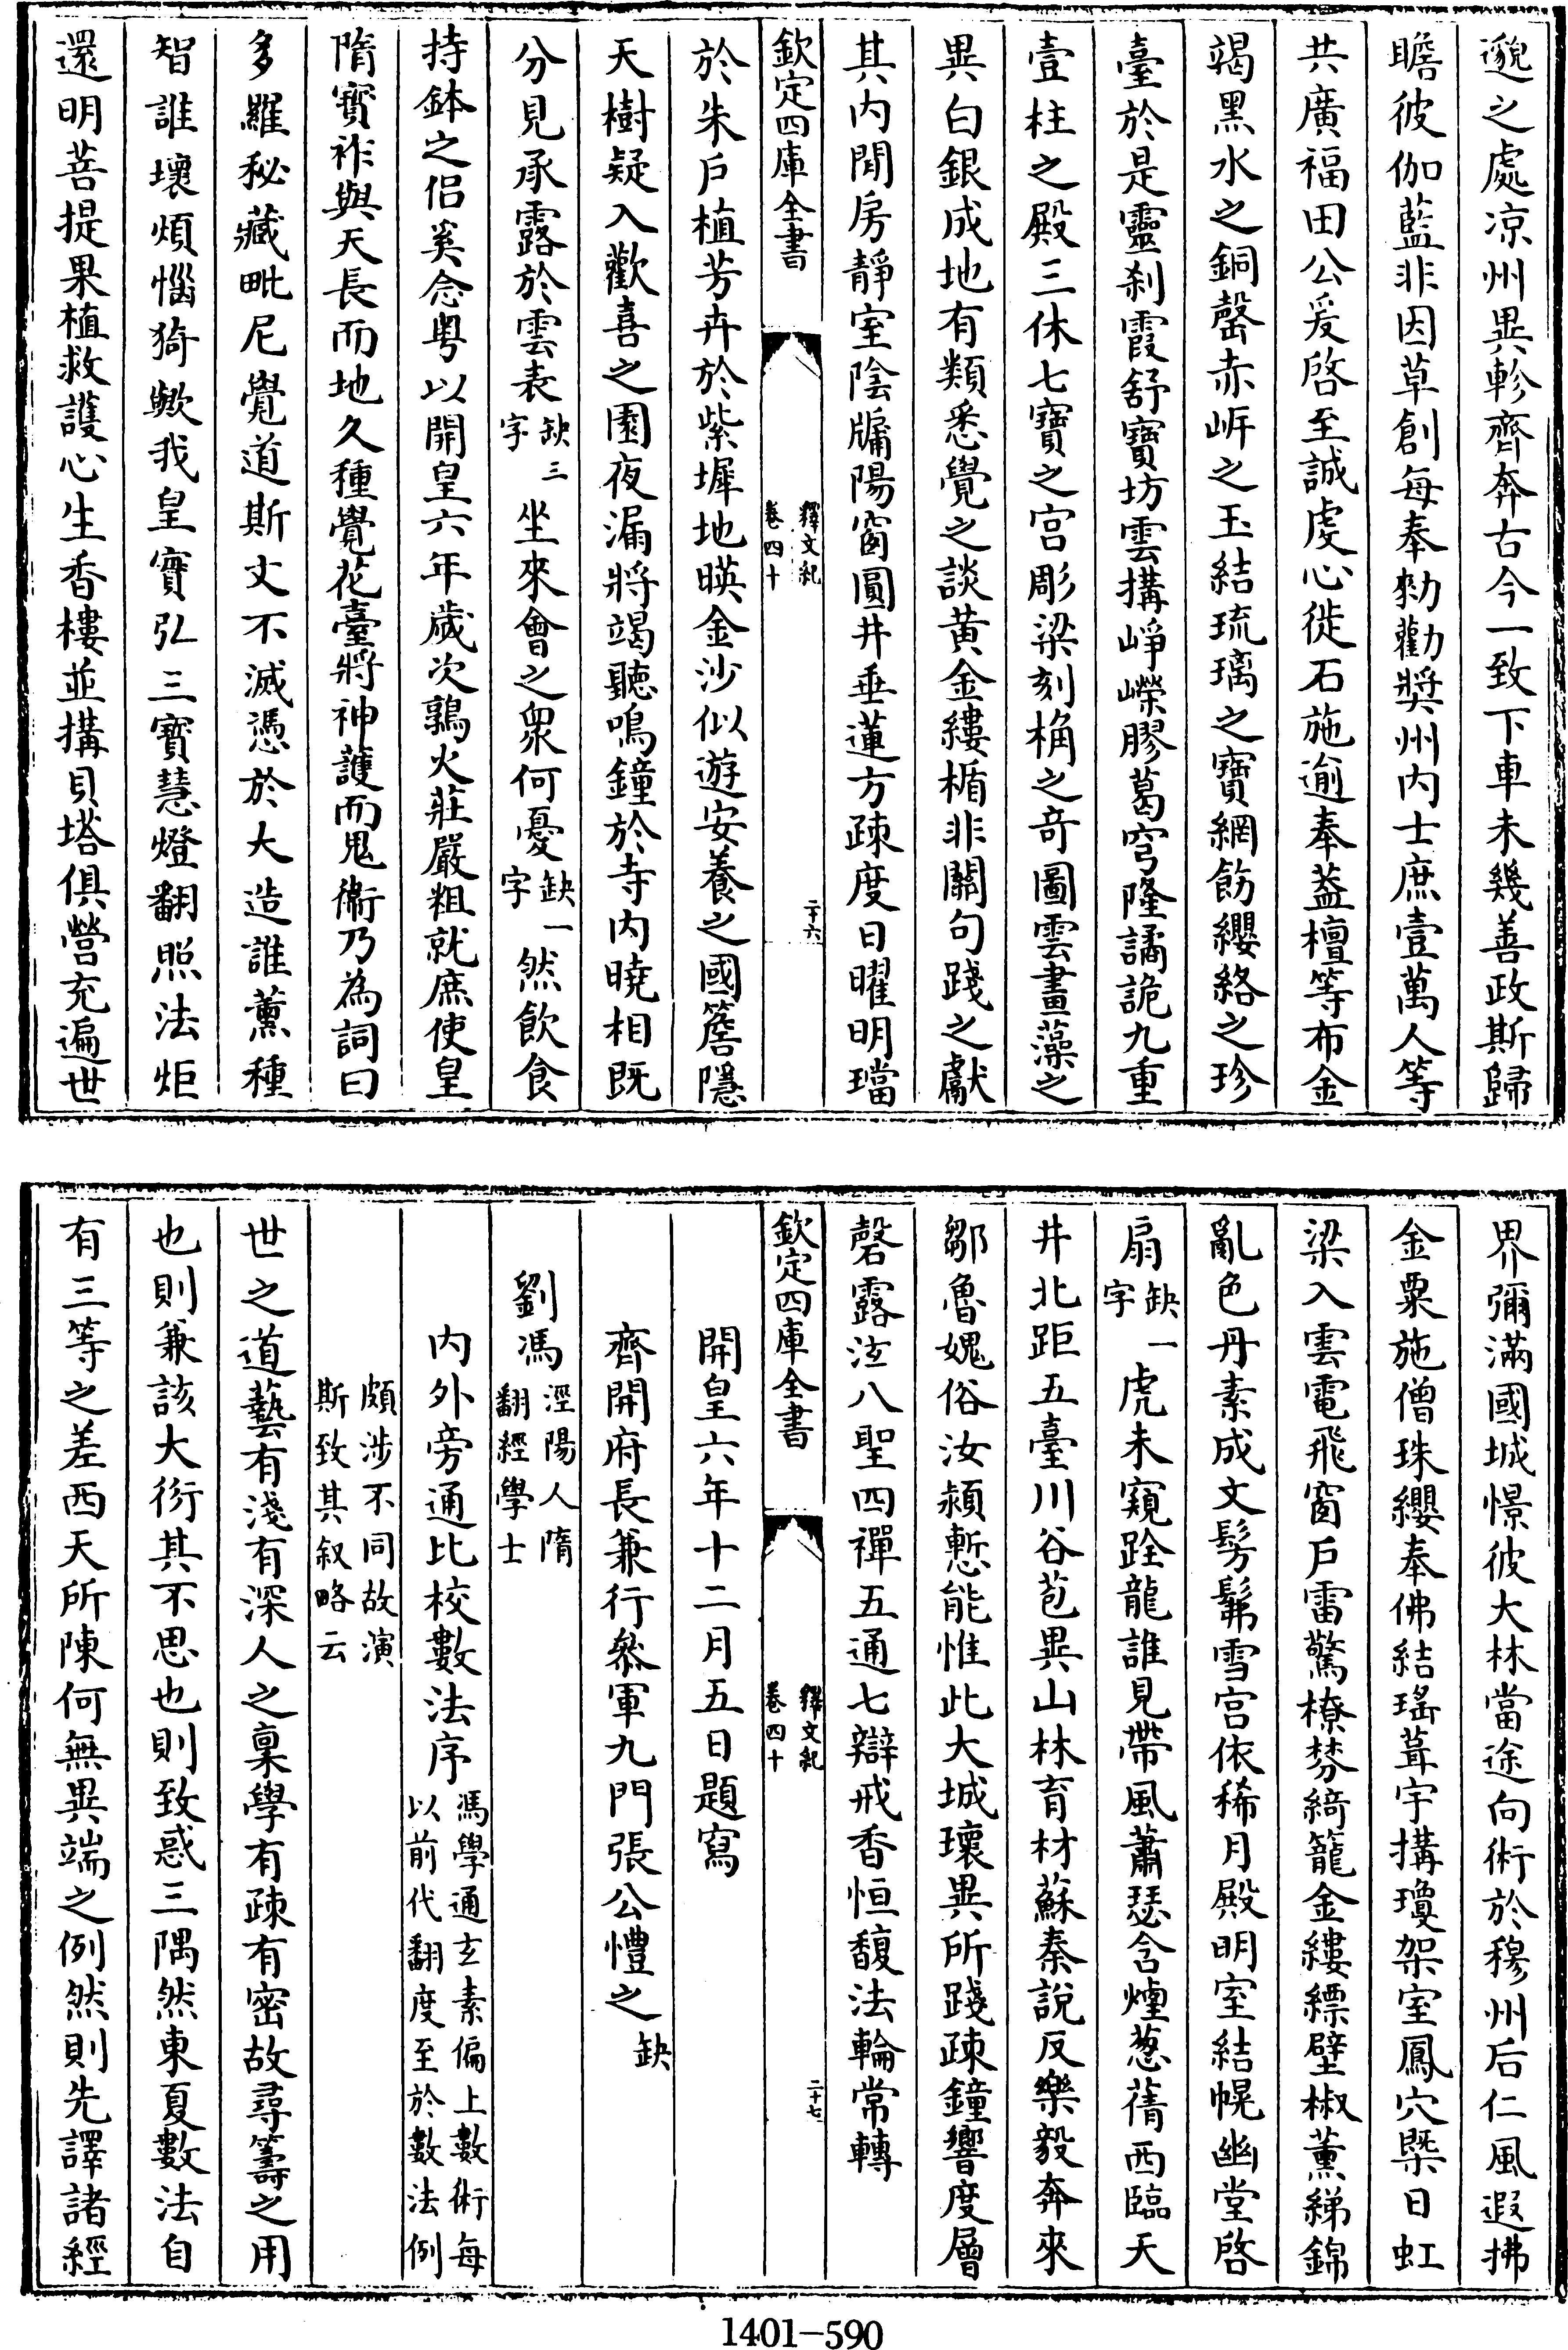 邈之處凉州異軫齊奔古今一致下車未幾善政斯歸
瞻彼伽藍非因草創每奉勅勸奬州内士庶壹萬人等
共廣福田公爰啓至誠虔心徙石施逾奉葢檀等布金
竭黑水之銅罄赤岍之玉結琉璃之寶網飭纓絡之珍
臺於是靈刹霞舒寶坊雲搆崢嶸膠葛穹隆譎詭九重
壹柱之殿三休七寶之宫彫梁刻桷之奇圖雲畫藻之
異白銀成地有類悉覺之談黄金縷楯非關句踐之獻
其内閒房靜室陰牖陽窗圓井垂蓮方疎度日曜明璫
欽定四庫全書
釋文紀
卷四十
二十六
於朱戶植芳卉於紫墀地暎金沙似遊安養之國簷隱
天樹疑入歡喜之園夜漏將竭聽鳴鐘於寺内曉相既
分見承露於雲表缺三字坐來會之衆何憂缺一字然飲食
持鉢之侣奚念粤以開皇六年歲次鶉火莊嚴粗就庶使皇
隋寳祚與天長而地久種覺花臺將神護而鬼衞乃為詞曰
多羅秘藏毗尼覺道斯文不滅憑於大造誰薰種
智誰壞煩惱猗歟我皇實弘三寶慧燈翻照法炬
還明菩提果植救護心生香樓並搆貝塔俱營充遍世
界彌滿國城憬彼大林當途向術於穆州后仁風遐拂
金粟施僧珠纓奉佛結瑤葺宇搆瓊架室鳳穴槩日虹
梁入雲電飛窗戶雷驚橑棼綺籠金縷縹壁椒薰綈錦
亂色丹素成文髣髴雪宫依稀月殿明室結幌幽堂啓
扇缺一字虎未窺跧龍誰見帶風蕭瑟含煙葱蒨西臨天
井北距五臺川谷苞異山林育材蘇秦說反樂毅奔來
鄒魯媿俗汝潁慙能惟此大城壞異所踐疎鐘響度層
磬露泣八聖四禪五通七辯戒香恒馥法輪常轉
欽定四庫全書
釋文紀
卷四十
二十七
開皇六年十二月五日題寫
齊開府長兼行叅軍九門張公禮之缺
劉馮涇陽人隋翻經學士
内外旁通比校數法序馮學通玄素偏上數術每以前代翻度至於數法例
頗涉不同故演斯致其叙略云
世之道藝有淺有深人之稟學有疎有密故尋籌之用
也則兼該大衍其不思也則致惑三隅然東夏數法自
有三等之差西天所陳何無異端之例然則先譯諸經
1401-590